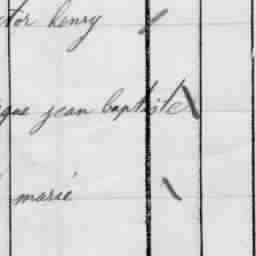 ctor henry
que jean baptiste
marie